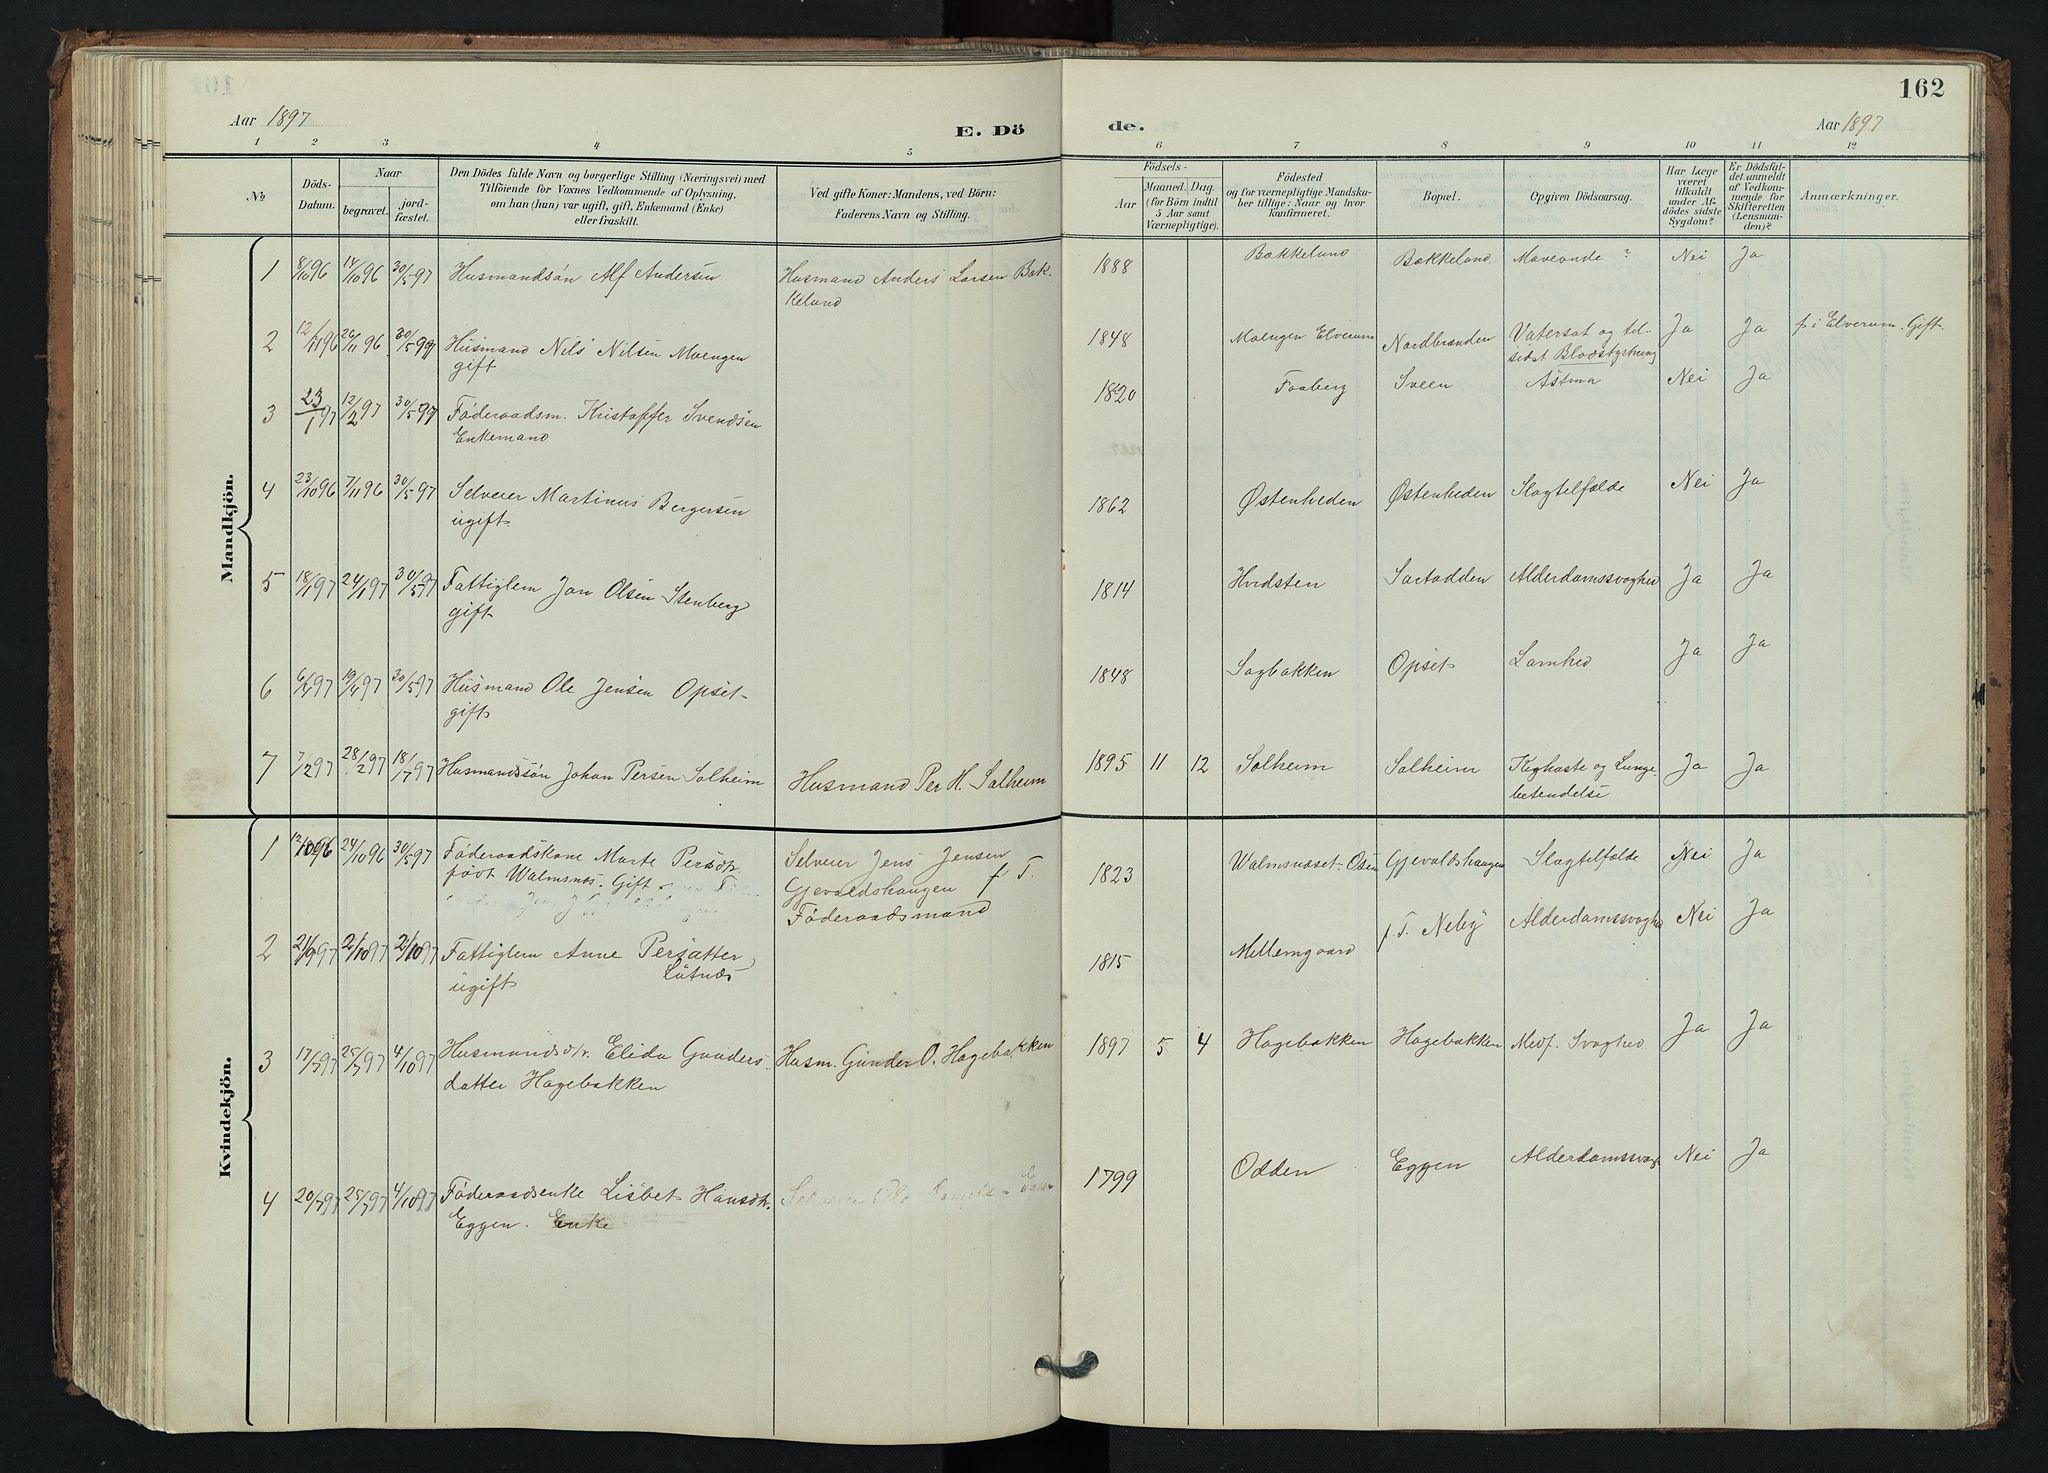 162
Aar 1897
E. Dö
de.
Aar 1897
1 2 3 4 5 6 7 8 9 10 11 12
No
Döds-
Datum.
Naar
begravet.
jord-
fæstet.
Den Dödes fulde Navn og borgerlige Stilling (Næringsvei) med
Tilföiende for Voxnes Vedkommende af Oplysning,
om han (hun) var ugift, gift, Enkemand (Enke)
eller fraskilt.
Ved gifte Koner: Mandens, ved Börn:
Faderens Navn og Stilling.
Födsels-
Aar
Maaned. Dag.
(for Börn indtil
5 Aar samt
Værnepligtige).
Födested
og for værnepligtige Mandska-
ber tillige: Naar og hvor
konfirmeret.
Bopæl.
Opgiven Dödsaarsag.
Har Læge
været
tilkaldt
under Af-
dödes sidste
Sygdom?
Er Dödsfal-
det anmeldt
af Vedkom-
mende for
Skifteretten
(Lensman-
den)?
Anmærkninger.
Mandkjön.
1 8/10 96 14/10 96 30/5 97 Husmandsön Alf Andersen Husmand Anders Larsen Bæk- 1888 Bækkelund Bækkelund Maveonde ? Nei Ja
kelund
2 12/11 96 26/11 96 30/5 97 Husmand Nils Nilsen Moengen 1848 Moengen Elverum Nordbranden Vatersot og til- Ja Ja f i Elverum. Gift.
gift sidst Blodstyrtning
3 23/1 97 12/2 97 30/5 97 Föderaadsm. Kristoffer Svendsen 1820 Faaberg Sveen Astma Nei Ja
Enkemand
4 23/10 96 7/11 96 30/5 97 Selveier Martinus Bergersen 1862 Østenheden Østenheden Slagtilfælde Nei Ja
ugift.
5 18/1 97 24/1 97 30/5 97 Fattiglem Jon Olsen Stenberg 1814 Hvidsten Sætodden Alderdomssvaghed Ja Ja
gift
6 6/4 97 19/4 97 30/5 97 Husmand Ole Jensen Opset 1848 Sagbakken Opset Lamhed Ja Ja
gift
7 7/2 97 28/2 97 18/7 97 Husmandssön Johan Persen Solheim Husmand Per H. Solheim 1895 11 12 Solheim Solheim Kighoste og Lunge- Ja Ja
betendelse
Kvindekjön.
1 12/10 96 24/10 96 30/5 97 Föderaadskone Marte Persdtr. Selveier Jens Jensen 1823 Valmsnæset-Osen Gjevaldshaugen Slagtilfælde Nei Ja
født Valmsnæs. Gift Gjevaldshaugen f T.
Föderaadsmand
2 21/9 97 2/10 97 2/10 97 Fattiglem Anne Persdatter, 1815 Mellemgaard f. T. Neby Alderdomssvaghed Nei Ja
ugift Lutnæs
3 17/7 97 25/7 97 4/10 97 Husmandsdtr. Elida Gunders- Husm. Gunder O. Hagebakken 1897 5 4 Hagebakken Hagebakken Medf. Svaghed Ja Ja
datter Hagebakken
4 20/7 97 25/7 97 4/10 97 Föderaadsenke Lisbet Hansdtr. Selveier 1799 Odden Eggen Alderdomssvagh. Nei Ja
Eggen. Enke